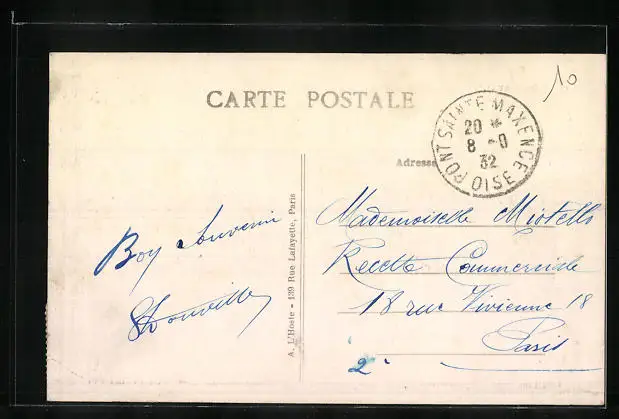 CARTE POSTALE
10
PONT SAINTE MAXENCE
20 *
8 - 9
32
OISE
Adresse
Mademoiselle Miotello
Recette Commerciale
18 rue Vivienne 18
Paris
2e
Bon Souvenir
A. L'Hoste - 139 Rue Lafayette, Paris